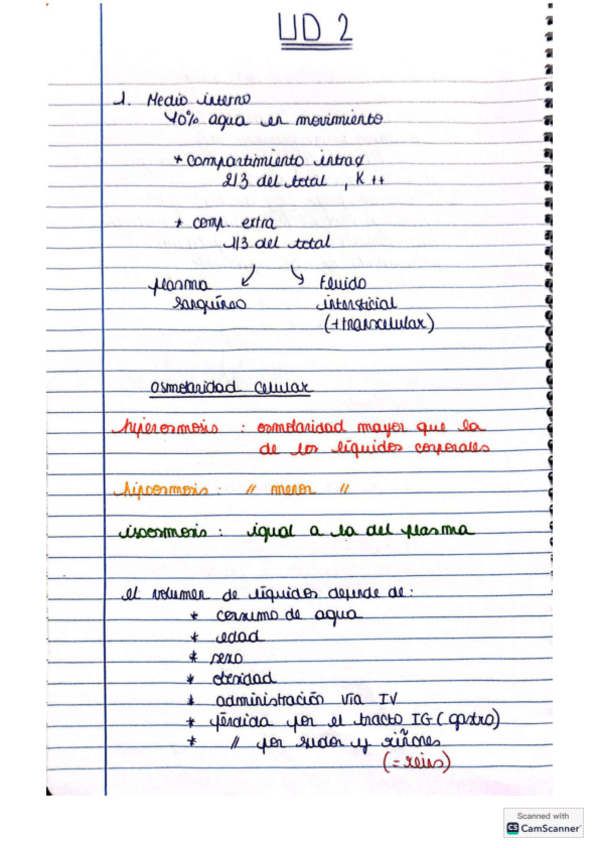 UD 2
1. Medio interno
40% agua en movimiento
* compartimiento intra¢
2/3 del total, K++
* comp. extra
1/3 del total
plasma sanguíneo
Fluido intersticial (+transcelular)
osmolaridad celular
hiperosmosis : osmolaridad mayor que la
de los líquidos corporales
hipoosmosis : // menor //
isoosmosis : igual a la del plasma
el volumen de líquidos depende de :
* consumo de agua
* edad
* sexo
* obesidad
* administración vía IV
* pérdida por el tracto IG (gastro)
* // por sudor y riñones
(= reins)
Scanned with
CS CamScanner